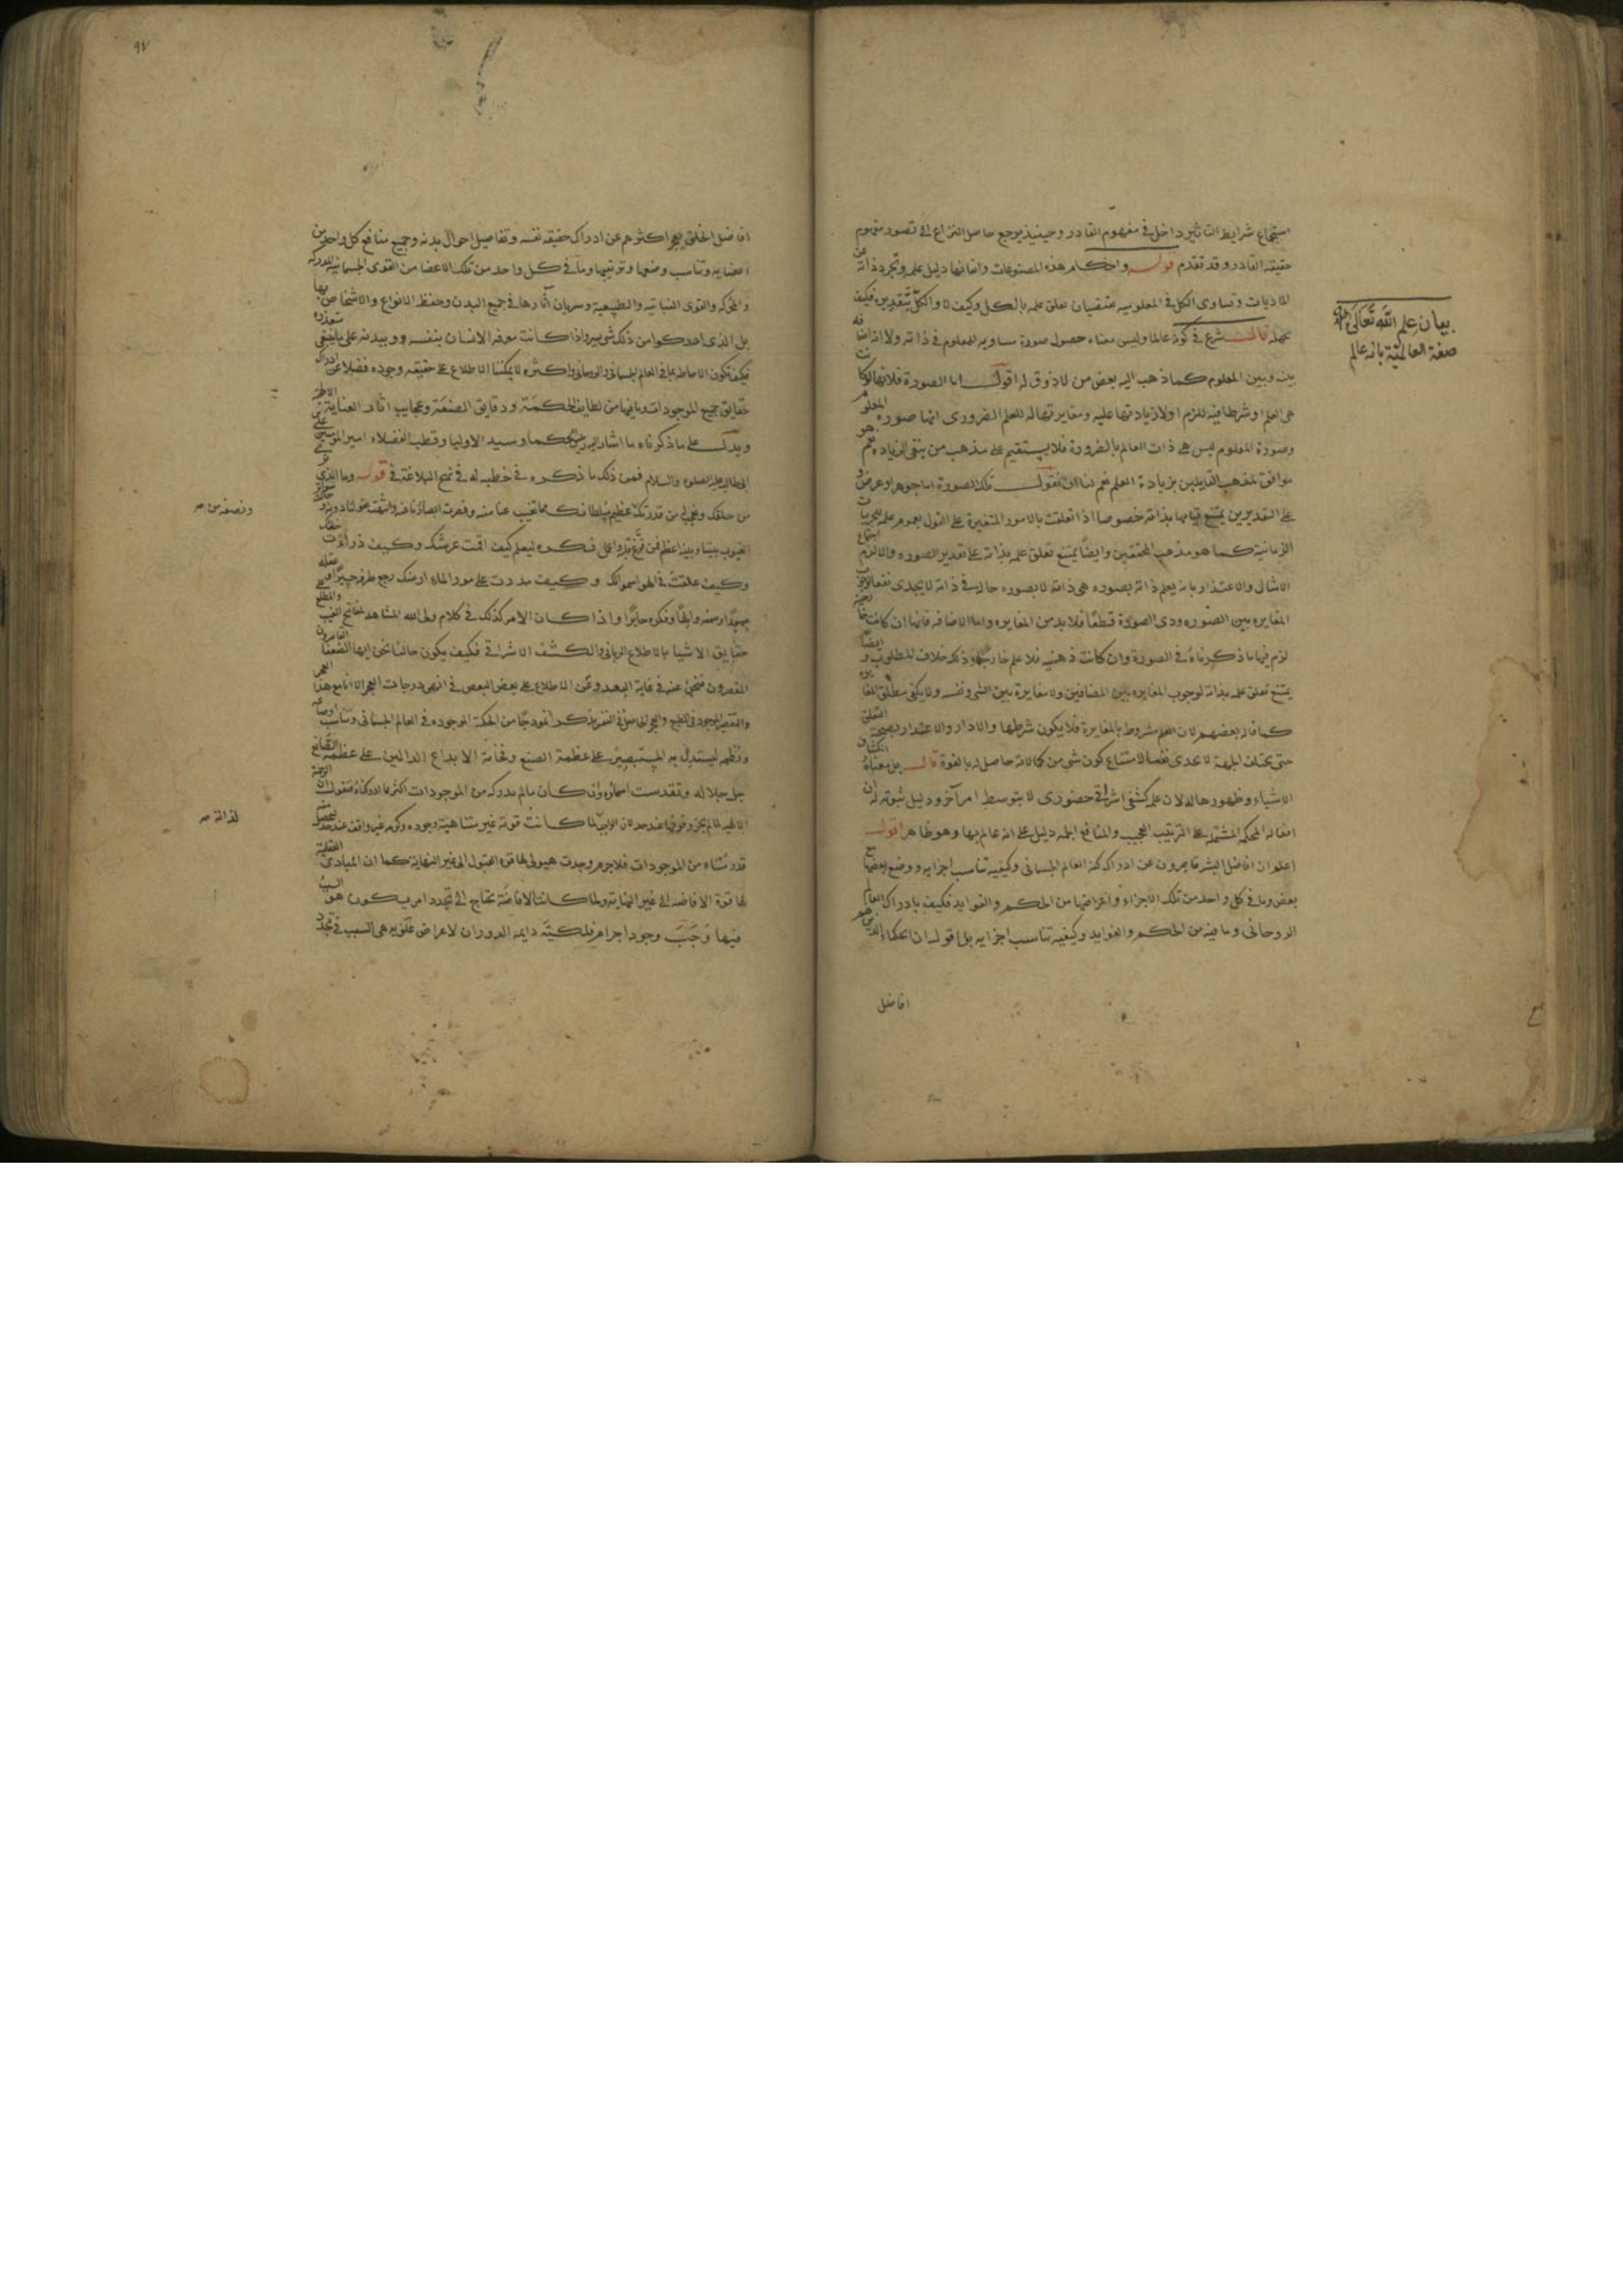 استجماع شرايط التاثير داخل فى مفهوم القادر وحينيذ يرجع حاصل النزاع الى تصور مفهوم
حقيقه القادر وقد تقدم قولـه واحكام هذه المصنوعات واتقانها دليل علمه وتجرد ذاته عن
الماديات وتساوى الكل فى المعلوميه يقتضيان تعلق علمه بالكل وكيف لا والكل بتقديره فكيف
يجهله قالـ شرع فى كونه عالما وليس معناه حصول صورة مساويه للمعلوم فى ذاته ولا انه اضافه
بينه وبين المعلوم كما ذهب اليه بعض من لا ذوق له اقولـ اما الصورة فلانها لو كانت
هى العلم او شرطا فيه للزم اولا زيادتها عليه ومغايرتها له للعلم الضرورى انها صورة المعلوم
وصورة المعلوم ليس هى ذات العالم بالضرورة فلا يستقيم على مذهب من ينفى الزيادة نعم هو
موافق لمذهب القايلين بزيادة العلم نعم لنا ان نقولـ تلك الصورة اما جوهر او عرض و
على التقديرين يمتنع قيامها بذاته خصوصا اذا تعلقت بالامور المتغيرة على القول بعموم علمه للجزييات
الزمانية كما هو مذهب المحققين وايضا يمتنع تعلق علمه بذاته على تقدير الصوره والا لزم اجتماع
الامثال والاعتذار بانه يعلم ذاته بصوره هى ذاته لا بصوره حالـة فى ذاته لا يجدى نفعا لوجوب
المغايره بين الصوره وذى الصورة قطعا فلا بد من المغايره واما الاضافه فانها ان كانت خارجية
لزم فيها ما ذكرناه فى الصورة وان كانت ذهنيه فلا علم خارجا وذلك خلاف المطلوب وايضا
يمتنع تعلق علمه بذاته لوجوب المغايره بين المضافين ولا مغايرة بين الشى ونفسه ولا يكفى مطلق المغايره
كما قاله بعضهم لان العلم مشروط بالمغايرة فلا يكون شرطها والا دار والاعتذار بصحة التعلق
حتى يختلف الجهة لا يجدى نفعا لامتناع كون شى من كمالاته حاصل له بالقوة قالـ بل معناه انكشاف
الاشياء وظهورها له لان علمه كشفى اشراقى حضورى لا بتوسط امر آخر ودليل ثبوته له ان
افعاله المحكمه المشتمله على الترتيب العجيب والمنافع الجمه دليل على انه عالم بها وهو ظاهر اقولـ
اعلم ان افاضل البشر قاصرون عن ادراك كنه العالم الجسمانى وكيفيه تناسب اجزايه ووضع بعضها مع
بعض وما فى كل واحد من تلك الاجزاء واعراضها من الحكم والفوايد فكيف بادراك العالم
الروحانى وما فيه من الحكم والفوايد وكيفيه تناسب اجزايه بل اقولـ ان الحكماء الذين هم
افاضل
بيان علم الله تعالى
صفة العالمية بانه عالم
٩٧
افاضل الخلق يعجز اكثرهم عن ادراك حقيقه نفسه وتفاصيل احوال بدنه وجميع منافع كل واحد من
اعضايه وتناسب وضعها وترتيبها وما فى كل واحد من تلك الاعضا من القوى الجسمانيه المدركه
والمحركه والقوى النباتيه والطبيعية وسريان آثارها فى جميع البدن وحفظ الانواع والاشخاص بها
بل الذى ادركوا من ذلك شى يسير واذا كانت معرفه الانسان بنفسه وببدنه على ما ينبغى متعذره
فكيف تكون الاحاطه بما فى العالم الجسمانى والروحانى واكثره لا يمكننا الاطلاع على حقيقه وجوده فضلا عن ادراك
حقايق جميع الموجودات وما فيها من لطايف الحكمة ودقايق الصنعة وعجايب اثار العناية
ويدلـ على ما ذكرناه ما اشار اليه الحكما وسيد الاوليا وقطب الفضلاء امير المومنين على
ابى طالب عليه الصلوه والسلام فمن ذلك ما ذكره فى خطبه له فى نهج البلاغة فى قولـه وما الذى نرى
من خلقك ونعجب له من قدرتك ونصفه من عظيم سلطانك وما تغيب عنا منه وقصرت ابصارنا عنه وانتهت عقولنا دونه وحالت سواتر
الغيوب بيننا وبينه اعظم فمن فرغ قلبه واعمل فكره ليعلم كيف اقمت عرشك وكيف ذرأت خلقك
وكيف علقت فى الهوا سمواتك وكيف مددت على مور الماء ارضك رجع طرفه حسيرا وعقله
مبهورا وسمعه والها وفكره حايرا واذا كان الامر كذلك فى كلام ولى الله المشاهد لمفاتح الغيب والمطلع على
حقايق الاشيا بالاطلاع الربانى والكشف الاشراقى فكيف يكون حالنا نحن ايها الضعفا القاصرون
المقصرون فنحن عنه فى غاية البعد وعن الاطلاع على بعض البعض فى اقصى درجات العجز الا انا مع هذا العجز
والتقصير الموجود فى الطبع والعجز الحاصل فى النفس نذكر انموذجا من الحكمة الموجوده فى العالم الجسمانى وتناسب اوضاعه
ونظمه ليستدل به المستبصر على عظمة الصنع وفخامة الابداع الدالين على عظمة الصانع
جل جلاله وتقدست اسماؤه وان كان ما لم ندركه من الموجودات اكثر مما ادركناه فنقولـ ان الرحمة
الالهيه لما لم يجز وقوفها عند حد لان البارى لما كانت قوته غير متناهية وجوده وكرمه غير واقف عند حد
قدر متناه من الموجودات فلا جرم وجدت هيولى لها قوة القبول الى غير النهاية كما ان المبادى العقلية
لها قوة الافاضه الى غير النهاية ولما كانت الافاضة تحتاج الى تجدد امر يكون هو السبب
فيها وَجَبَ وجود اجرام فلكية دايمه الدوران لاعراض علويه هى السبب فى تجدد
ونصفه من صـ
لذاته صـ